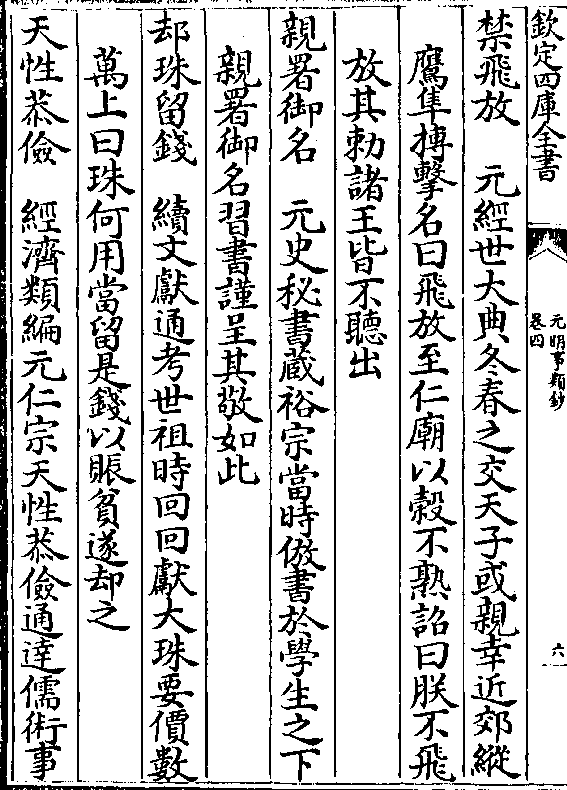 欽定四庫全書
元明事類鈔
卷四
六
禁飛放　元經世大典冬春之交天子或親幸近郊縱
鷹隼搏擊名曰飛放至仁廟以穀不熟詔曰朕不飛
放其勅諸王皆不聽出
親署御名　元史秘書蔵裕宗當時倣書於學生之下
親署御名習書謹呈其敬如此
却珠留錢　續文獻通考世祖時回回獻大珠要價數
萬上曰珠何用當留是錢以賑貧遂却之
天性恭儉　經濟類編元仁宗天性恭儉通逹儒術事